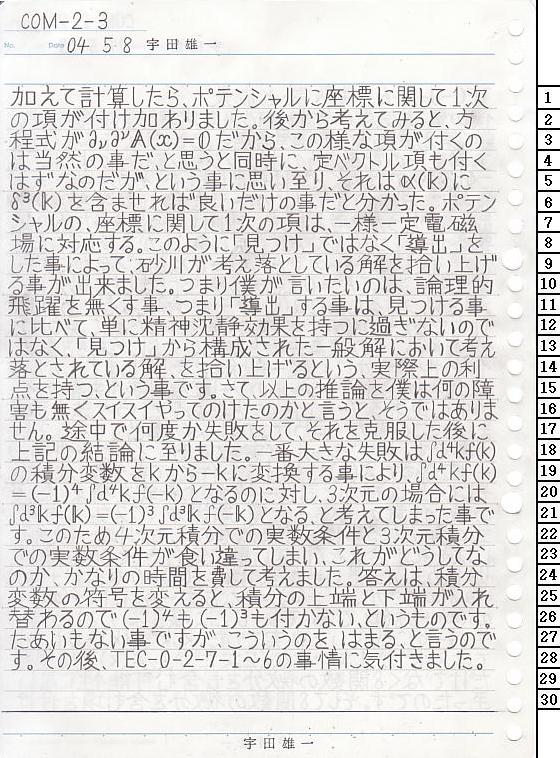 COM-2-3
No.
Date 04 5 8 宇田雄一
加えて計算したら、ポテンシャルに座標に関して1次
の項が付け加わりました。後から考えてみると、方
程式が∂ν∂^ν A(x)=0だから、この様な項が付くの
は当然の事だ、と思うと同時に、定ベクトル項も付く
はずなのだが、という事に思い至り、それはα(𝕜)に
δ³(𝕜)を含ませれば良いだけの事だと分かった。ポテン
シャルの、座標に関して1次の項は、一様一定電磁
場に対応する。このように「見つけ」ではなく「導出」を
した事によって、砂川が考え落としている解を拾い上げ
る事が出来ました。つまり僕が言いたいのは、論理的
飛躍を無くす事、つまり「導出」する事は、見つける事
に比べて、単に精神沈静効果を持つに過ぎないので
はなく、「見つけ」から構成された一般解において考え
落とされている解、を拾い上げるという、実際上の利
点を持つ、という事です。さて、以上の推論を僕は何の障
害も無くスイスイやってのけたのかと言うと、そうではありま
せん。途中で何度か失敗をして、それを克服した後に
上記の結論に至りました。一番大きな失敗は、∫d⁴kf(k)
の積分変数をkから−kに変換する事により、∫d⁴kf(k)
=(-1)⁴∫d⁴kf(-k)となるのに対し、3次元の場合には
∫d³𝕜f(𝕜)=(-1)³∫d³𝕜f(-𝕜)となる、と考えてしまった事で
す。このため4次元積分での実数条件と3次元積分
での実数条件が食い違ってしまい、これがどうしてな
のか、かなりの時間を費して考えました。答えは、積分
変数の符号を変えると、積分の上端と下端が入れ
替わるので(-1)⁴も(-1)³も付かない、というものです。
たあいもない事ですが、こういうのを、はまる、と言うので
す。その後、TEC-0-2-7-1〜6の事情に気付きました。
宇田雄一
1
2
3
4
5
6
7
8
9
10
11
12
13
14
15
16
17
18
19
20
21
22
23
24
25
26
27
28
29
30